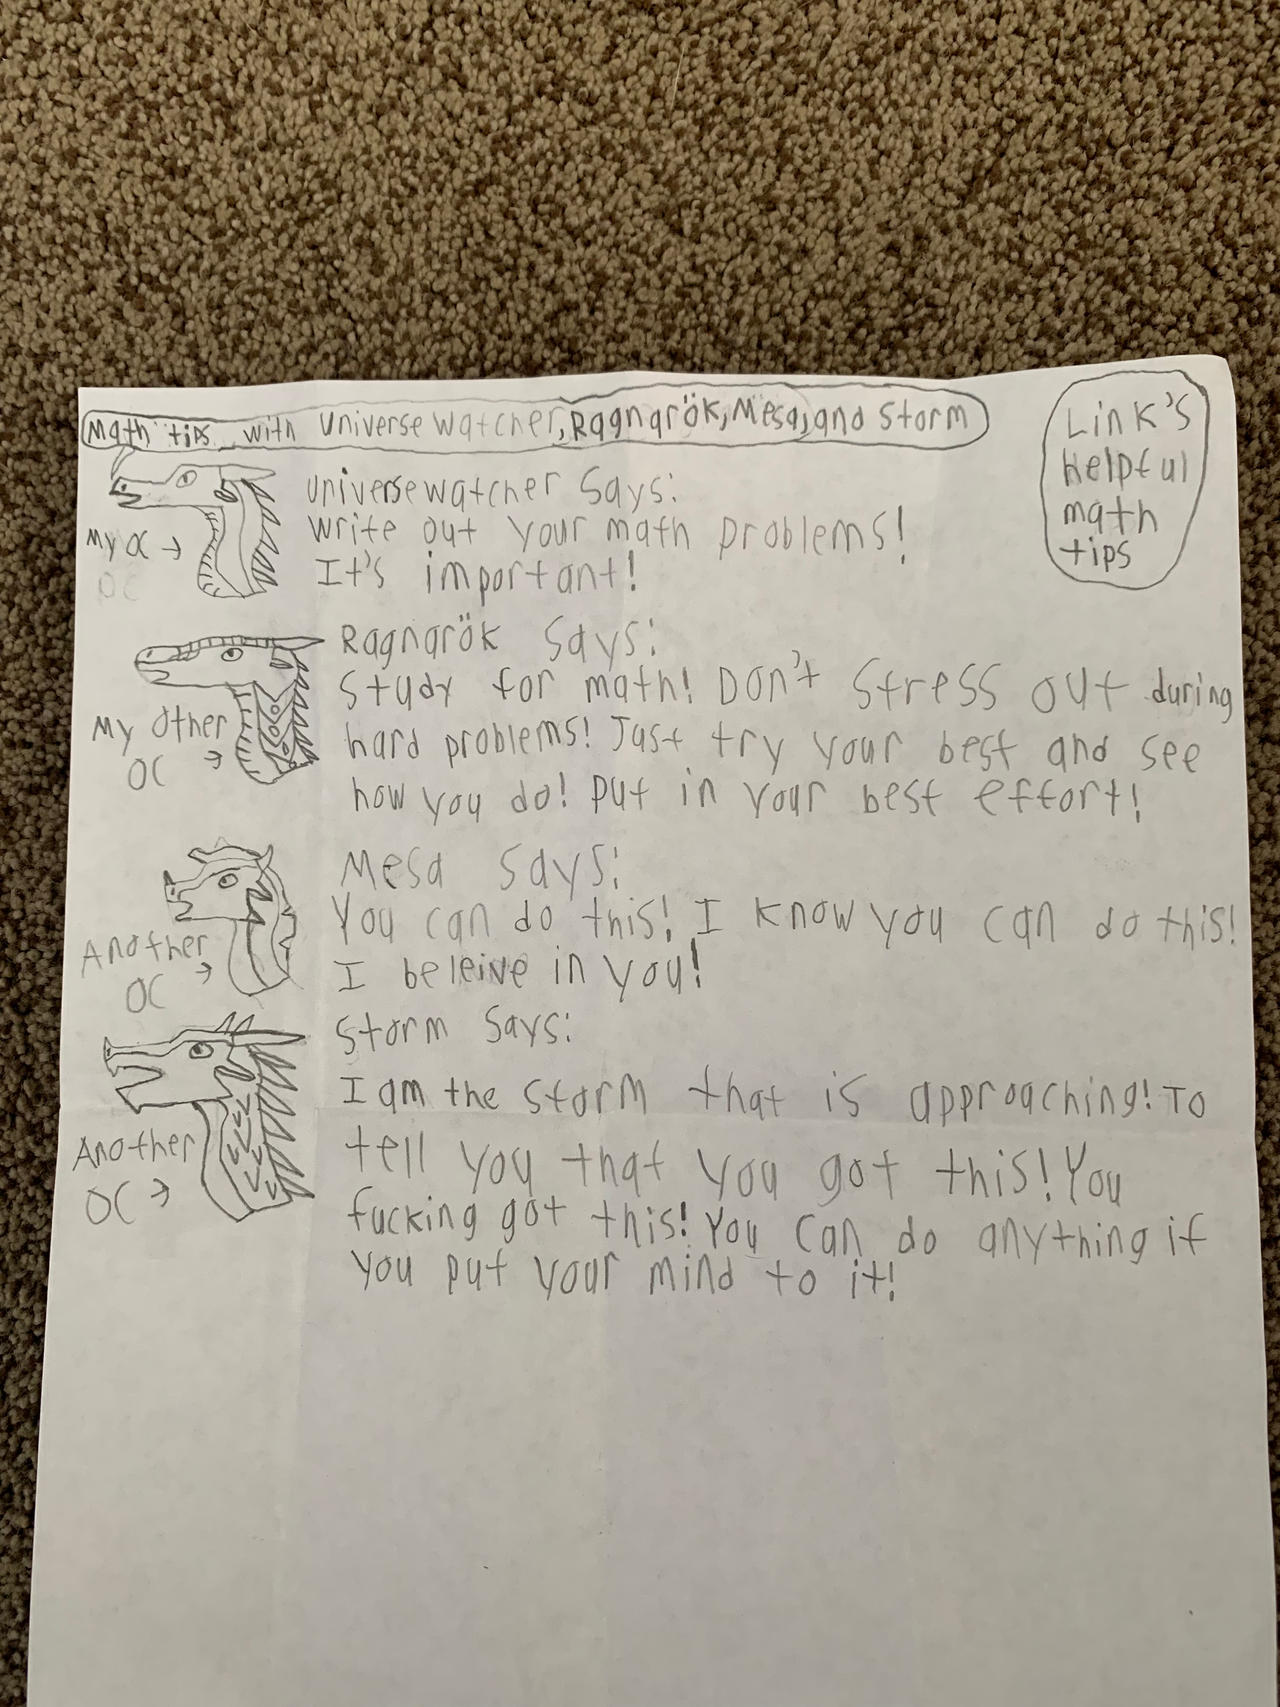 Math tips with Universewatcher, Ragnarök, Mesa, and Storm
Link's
helpful
math
tips
Universewatcher Says:
Write out your math problems!
It's important!
My OC →
OC
Ragnarök Says:
Study for math! Don't stress out during
hard problems! Just try your best and see
how you do! Put in your best effort!
My Other
OC →
Mesa Says:
You can do this! I know you can do this!
I beleive in you!
Another
OC →
Storm Says:
I am the storm that is approaching! To
tell you that you got this! You
fucking got this! You can do anything if
you put your mind to it!
Another
OC →